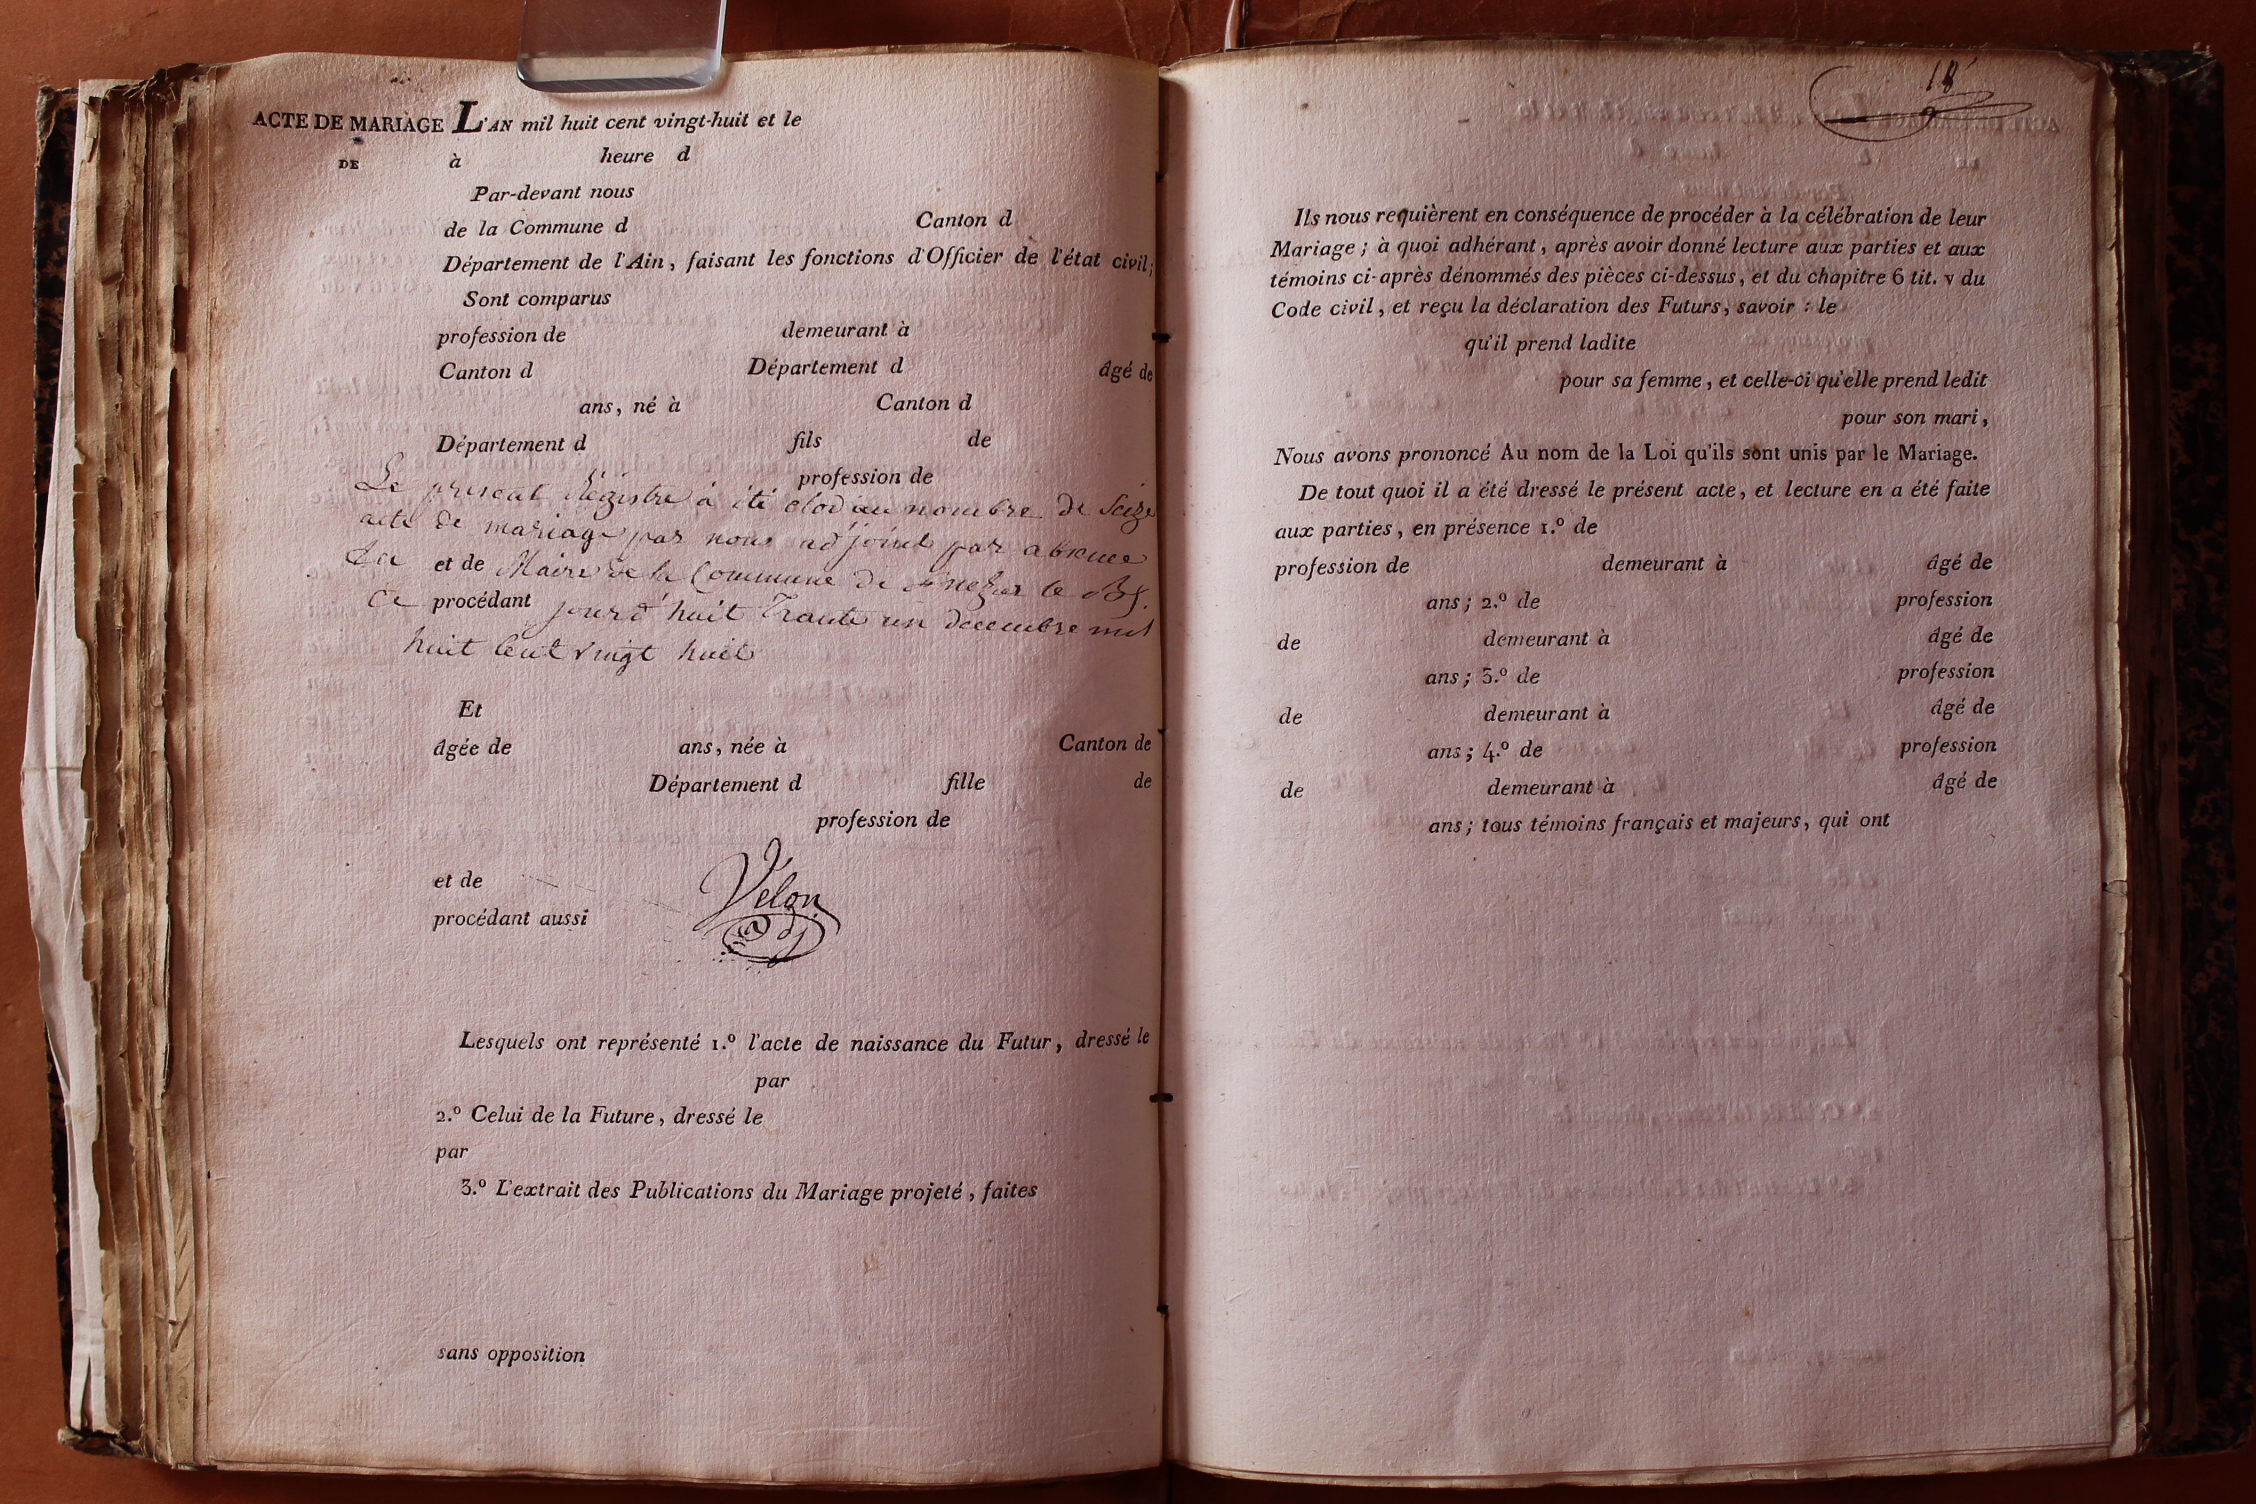 ACTE DE MARIAGE L'AN mil huit cent vingt-huit et le
DE à heure d
Par-devant nous
de la Commune d Canton d
Département de l'Ain, faisant les fonctions d'Officier de l'état civil;
Sont comparus
profession de demeurant à
Canton d Département d âgé de
ans, né à Canton d
Département d fils de
profession de
Le present Régistre à été clod au nombre de Seize
acte de mariage par nous adjoint par absence
et de Maire de la Commune de le
procédant
Ce jourd'huit Trante un decembre mil
huit Cent Vingt huit
Et
âgée de ans, née à Canton de
Département d fille de
profession de
et de
procédant aussi
Velon
adj
Lesquels ont représenté 1.º l'acte de naissance du Futur, dressé le
par
2.º Celui de la Future, dressé le
par
3.º L'extrait des Publications du Mariage projeté, faites
sans opposition
18
Ils nous requièrent en conséquence de procéder à la célébration de leur
Mariage; à quoi adhérant, après avoir donné lecture aux parties et aux
témoins ci-après dénommés des pièces ci-dessus, et du chapitre 6 tit. v du
Code civil, et reçu la déclaration des Futurs, savoir : le
qu'il prend ladite
pour sa femme, et celle-ci qu'elle prend ledit
pour son mari,
Nous avons prononcé Au nom de la Loi qu'ils sont unis par le Mariage.
De tout quoi il a été dressé le présent acte, et lecture en a été faite
aux parties, en présence 1.º de
profession de demeurant à âgé de
ans; 2.º de profession
de demeurant à âgé de
ans; 3.º de profession
de demeurant à âgé de
ans; 4.º de profession
de demeurant à âgé de
ans; tous témoins français et majeurs, qui ont